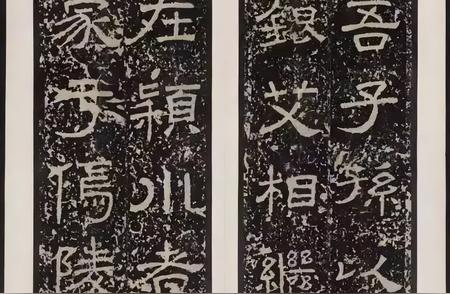 吾子孫以
銀艾相繼
在穎川者
家于傿陵